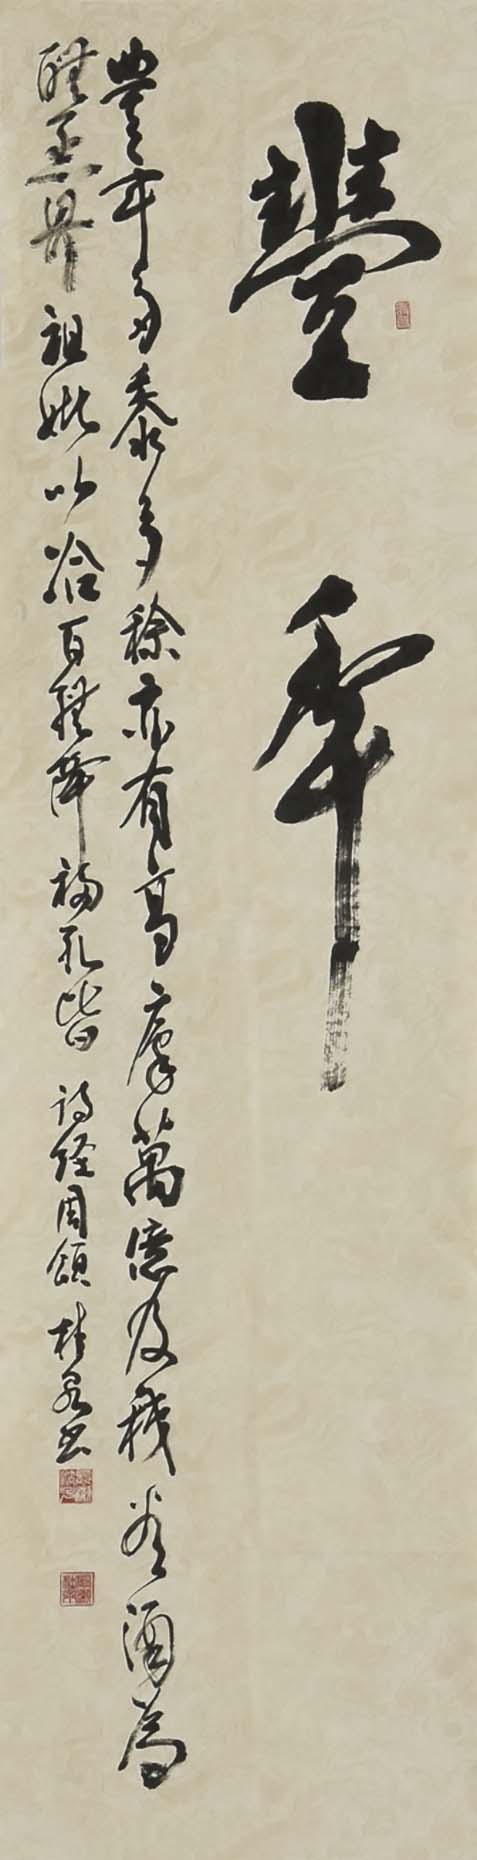 豐年
豐年多黍多稌亦有高廩萬億及秭為酒為
醴烝畀祖妣以洽百禮降福孔皆 诗经周頌 桂泉书